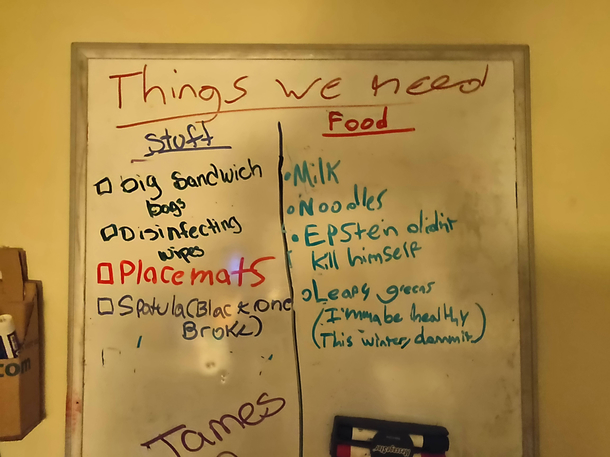 Things we need
Stuff
Big Sandwich
bags
Disinfecting
wipes
Placemats
Spatula(Black one
Broke)
Food
Milk
Noodles
EPStein didnt
Kill himself
Leafy greens
(I'mma be healthy
This winter, dammit)
James
com